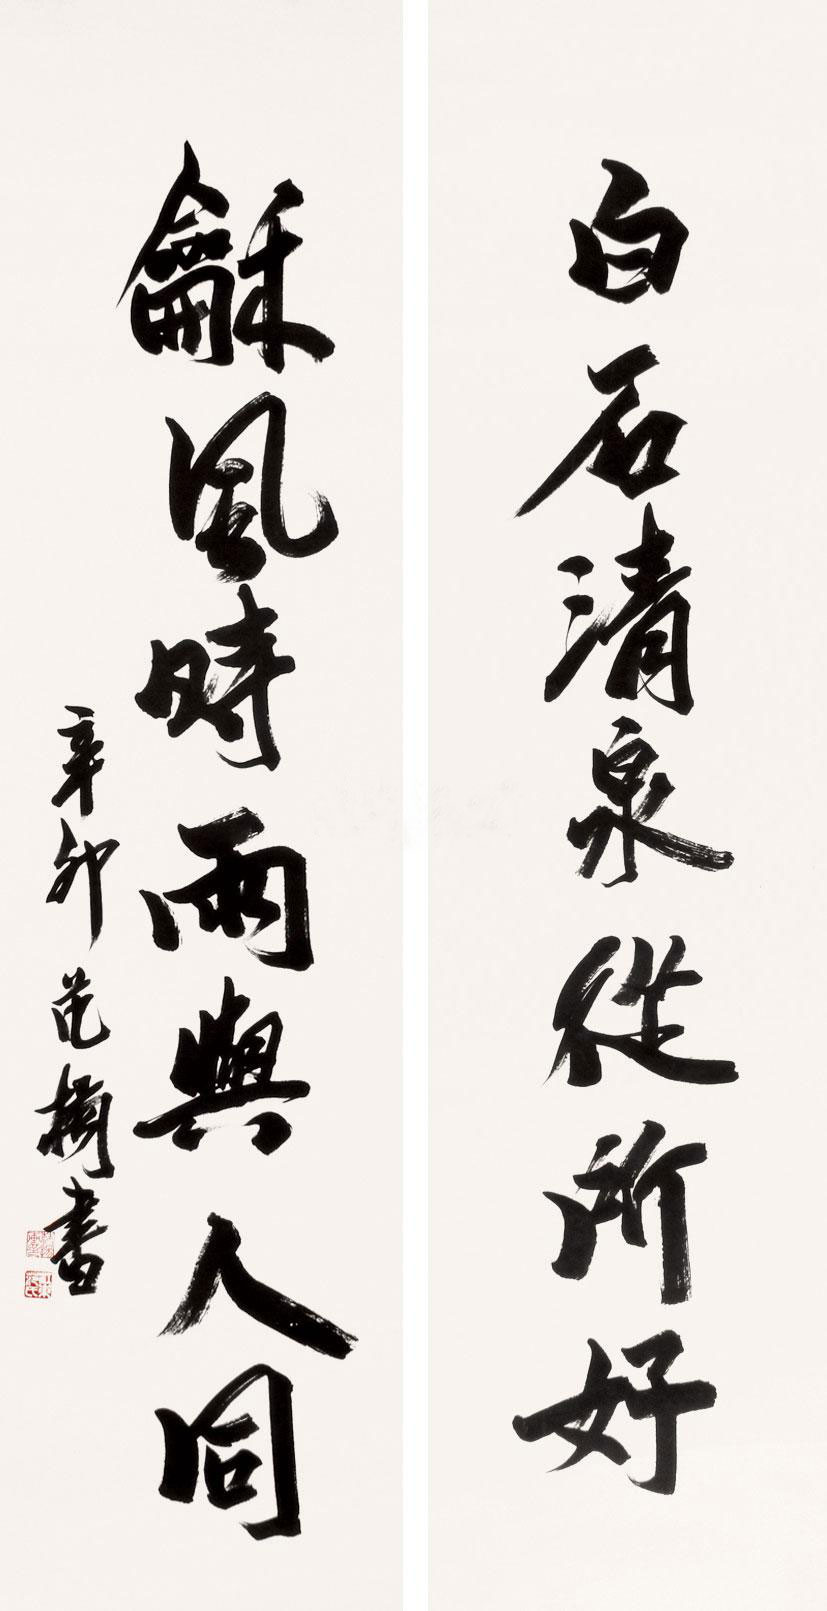 白石清泉從所好
龢風時雨與人同
辛卯 范楠書